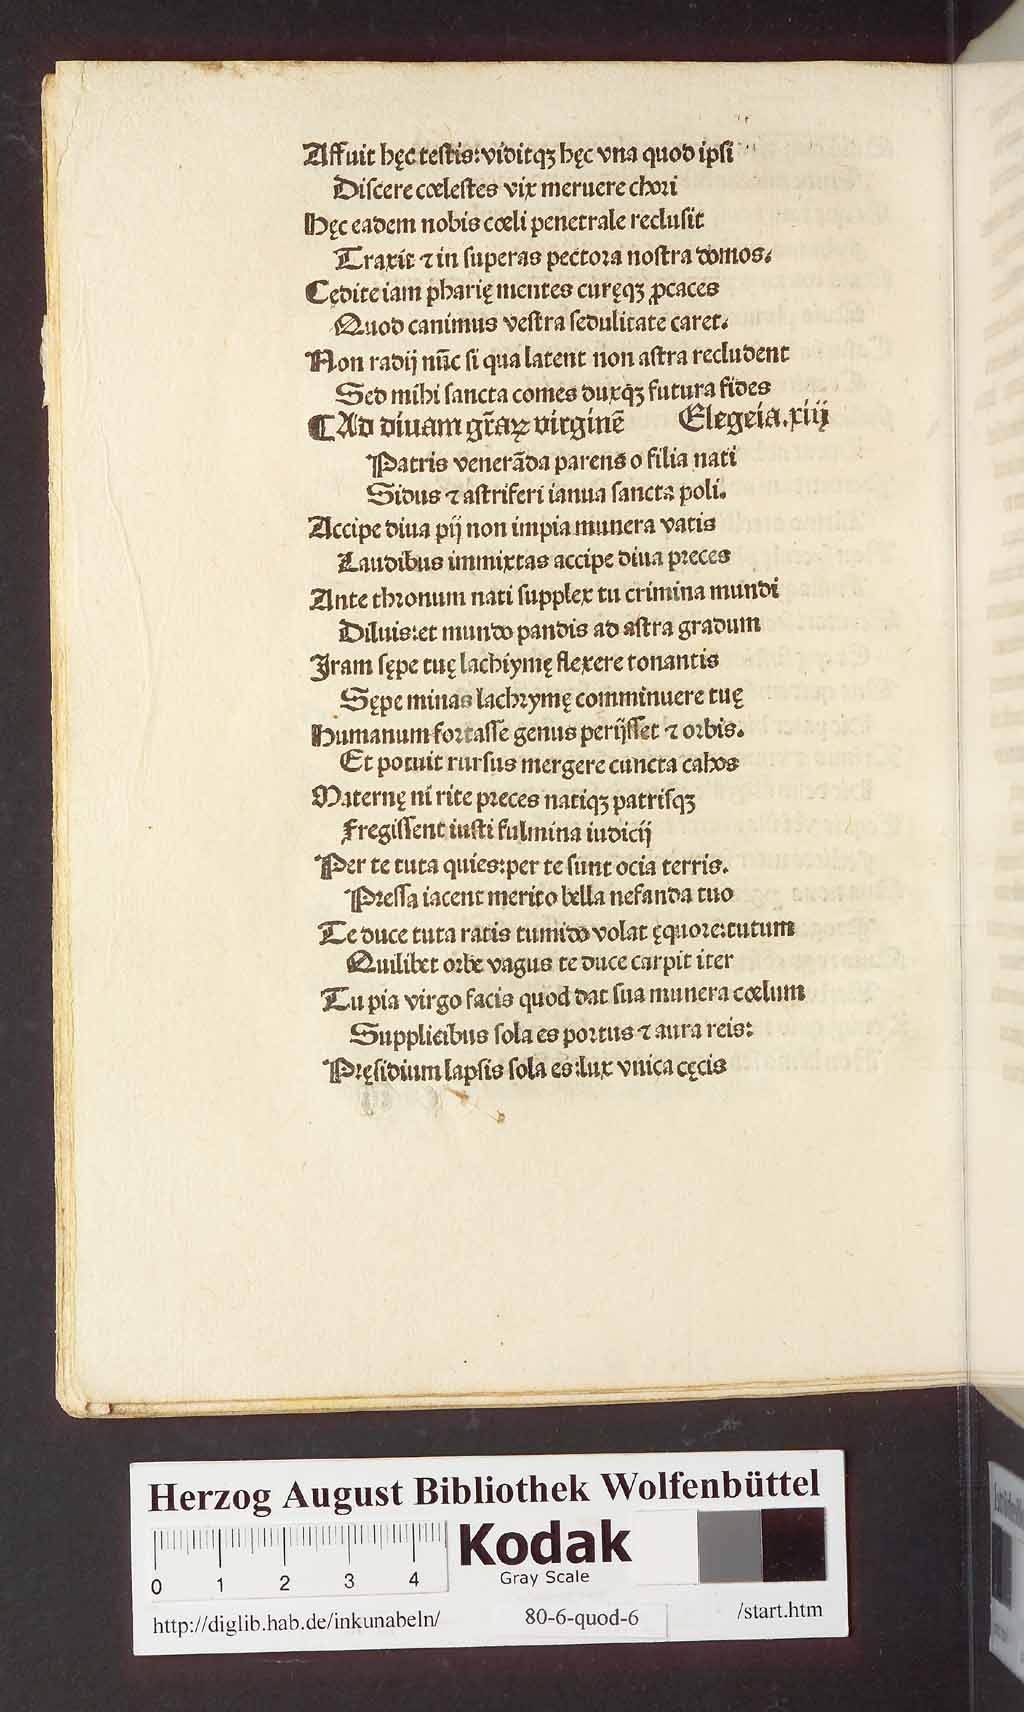 Affuit hęc testis: viditqꝫ hęc vna quod ipsi
Discere cœlestes vix meruere chori
Hęc eadem nobis cœli penetrale reclusit
Traxit ⁊ in superas pectora nostra domos.
Cędite iam pharię mentes curęqꝫ ꝓcaces
Quod canimus vestra sedulitate caret.
Non radij nūc si qua latent non astra recludent
Sed mihi sancta comes duxqꝫ futura fides
¶ Ad diuam gr̄aꝝ virginē Elegeia.xiij
Patris venerāda parens o filia nati
Sidus ⁊ astriferi ianua sancta poli.
Accipe diua pij non impia munera vatis
Laudibus immixtas accipe diua preces
Ante thronum nati supplex tu crimina mundi
Diluis: et mundo pandis ad astra gradum
Iram sępe tuę lachiymę flexere tonantis
Sępe minas lachrymę comminuere tuę
Humanum fortasse genus perijsset ⁊ orbis.
Et potuit rursus mergere cuncta cahos
Maternę ni rite preces natiqꝫ patrisqꝫ
Fregissent iusti fulmina iudicij
Per te tuta quies: per te sunt ocia terris.
Pressa iacent merito bella nefanda tuo
Te duce tuta ratis tumido volat ęquore: tutum
Quilibet orbe vagus te duce carpit iter
Tu pia virgo facis quod dat sua munera cœlum
Supplicibus sola es portus ⁊ aura reis:
Pręsidium lapsis sola es: lux vnica cęcis
Herzog August Bibliothek Wolfenbüttel
Kodak
Gray Scale
0 1 2 3 4
http://diglib.hab.de/inkunabeln/ 80-6-quod-6 /start.htm